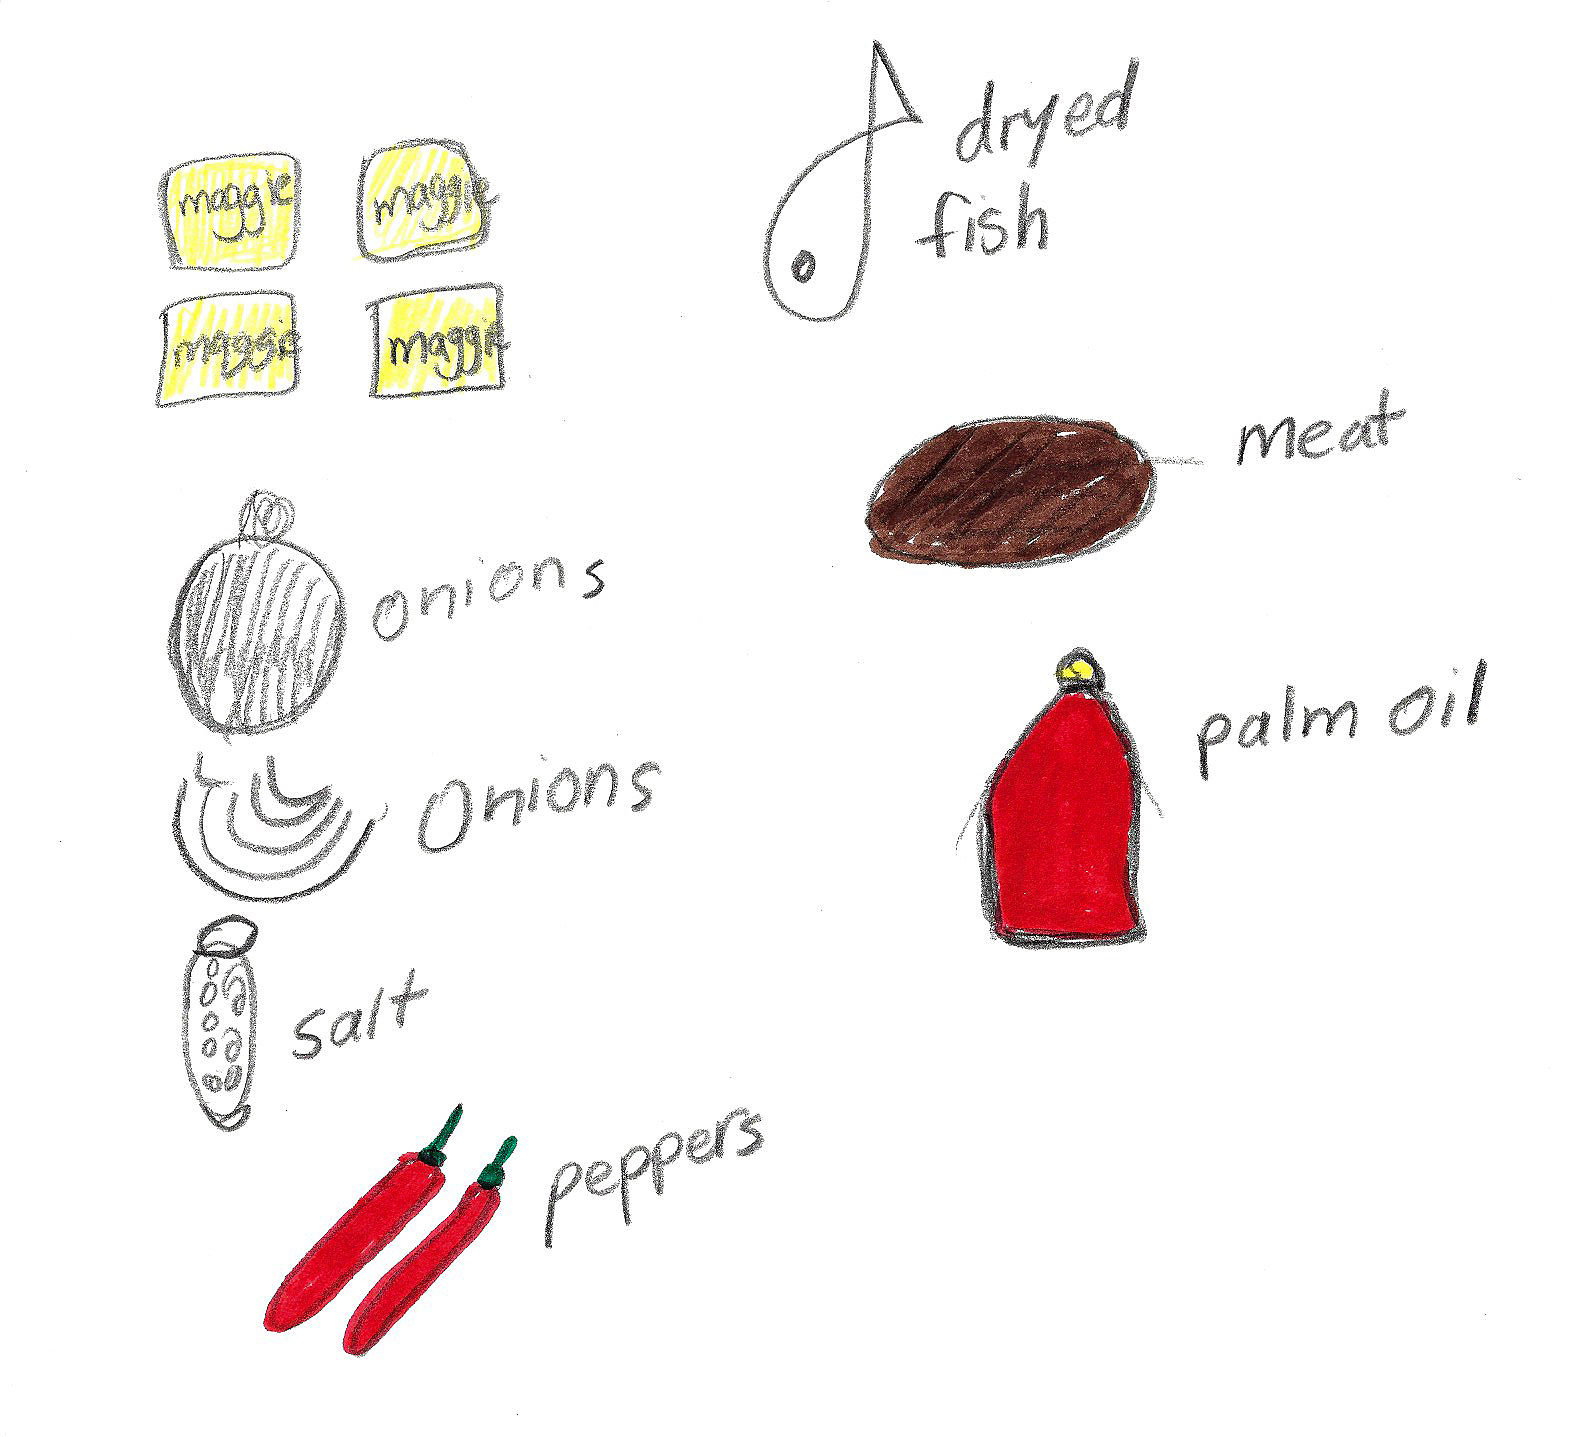 maggie
maggie
maggie
maggie
onions
Onions
salt
peppers
dryed
fish
meat
palm oil